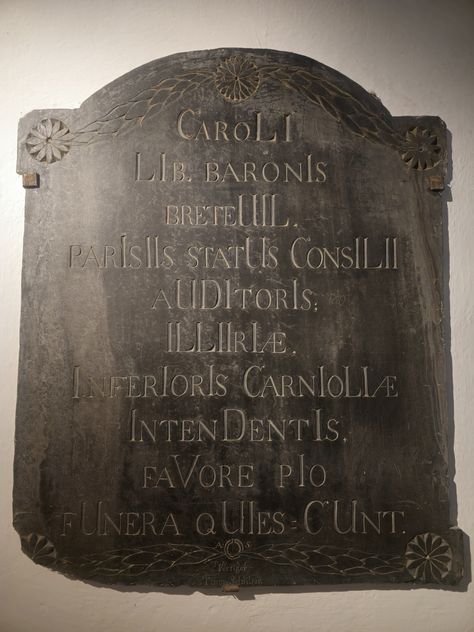 CaroLI
LIB. BARONIS
BRETEUIL.
PARISIIS STATUS CONSILII
AUDITORIS;
ILLIIRIÆ,
INFERIORIS CARNIOLIÆ
INTENDENTIS,
FAVORE PIO
FUNERA QUIES=CUNT.
A S